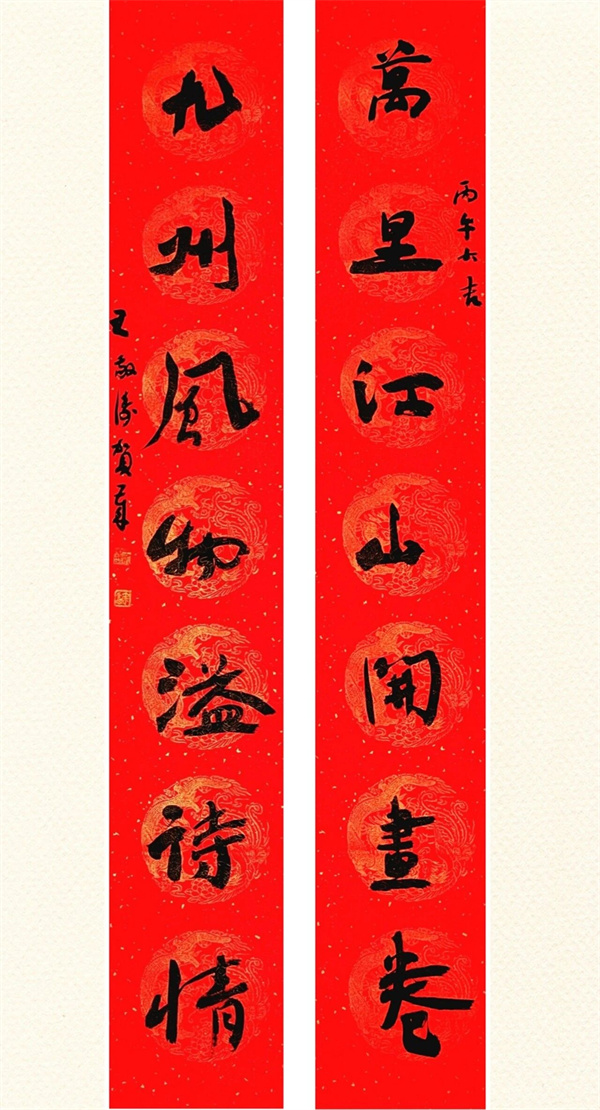 萬里江山開畫卷
丙午大吉
九州風物溢诗情
王敬涛贺年